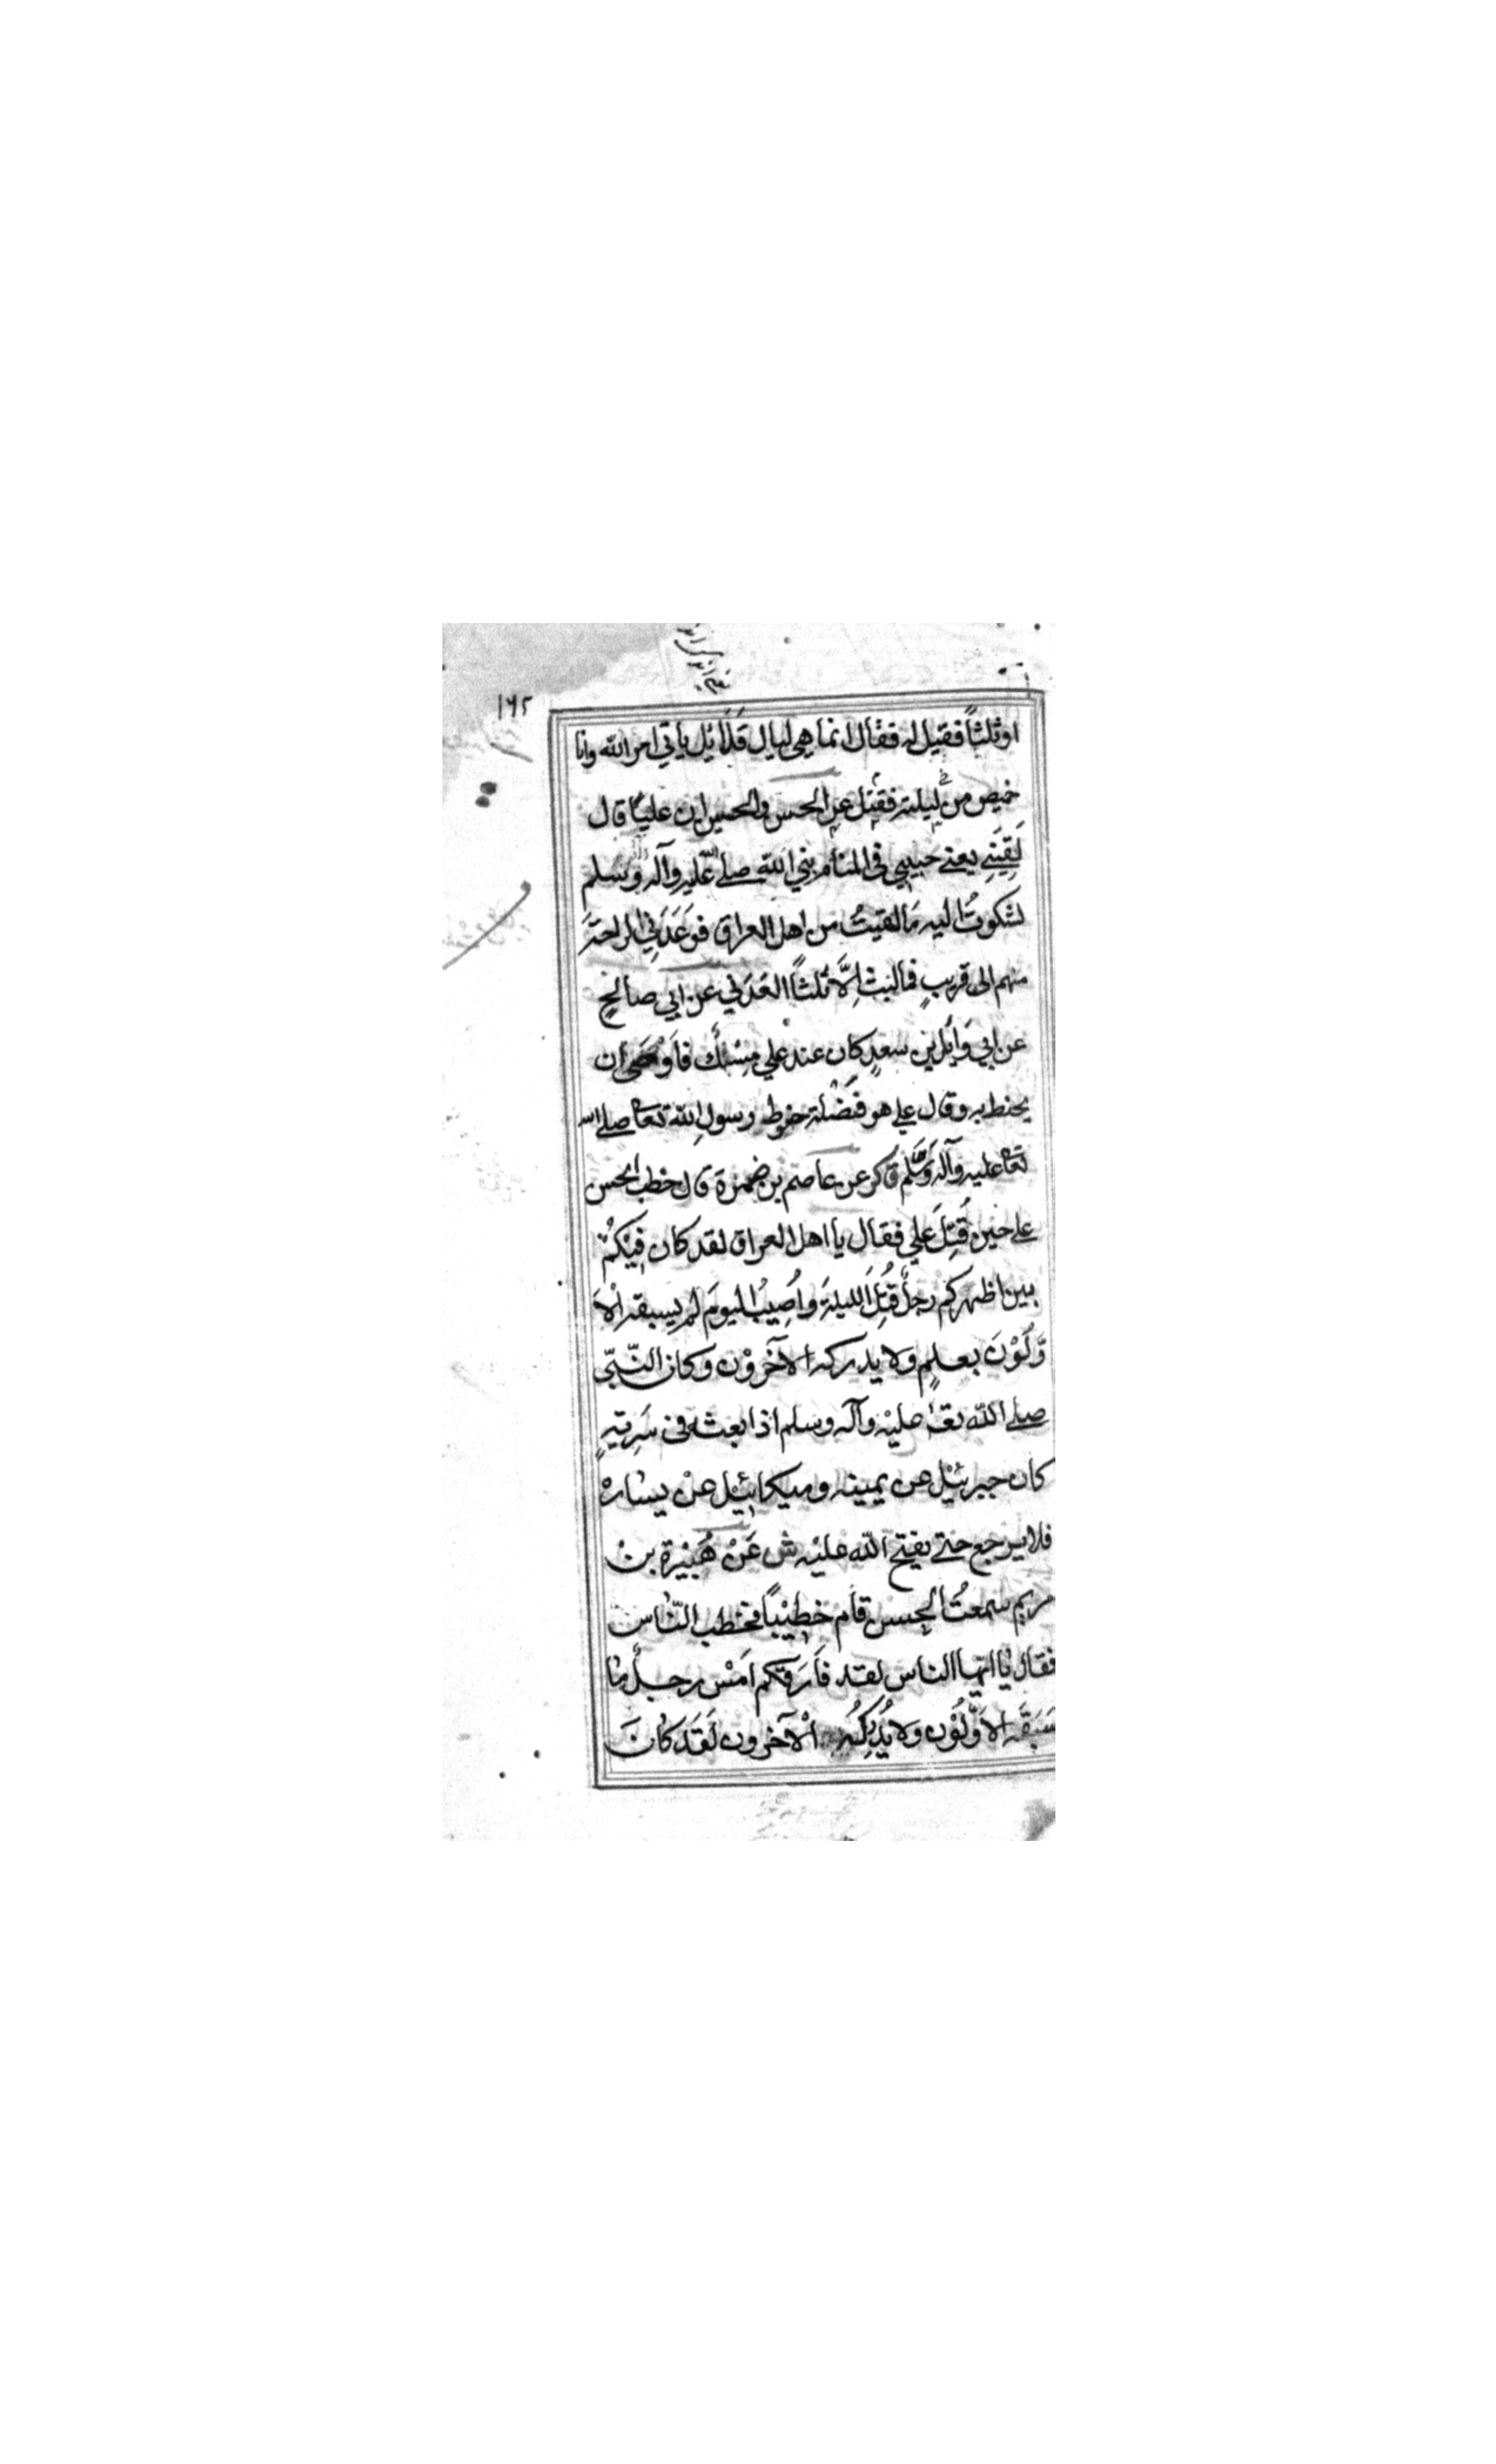 ١٦٢
اوثلثاً فقيل له فقال انما هي ليال قَلَائل ياتي امر الله وانا
خميص من ليلته فقتل عن الحسن والحسين ان علياً قال
لَقِيَنِي يعني حبيبي في المنام نبي الله صلى عليه وآله وسلم
لشكوتُ اليه مَا لقيتُ من اهل العراق فوَعَدَنِي الراحة
منهم الى قريبٍ فما لبث اِلَّا ثلثاً العَدَني عن ابي صالحٍ
عن ابي وَائل بن سعدٍ كان عند علي مِسْك فَاَوْصَى ان
يحنط به وقال علي هو فَضْلة حنوط رسولِ الله تعا صلى الله
تعا عليه وآله وَسَلم كر عن عاصم بن ضمرة قال خطب الحسن
علي حين قُتِلَ علي فقال يا اهل العراق لقد كان فِيْكُمْ
بين اظهركم رجلٌ قُتِلَ الليلَةَ واُصِيبَ اليومَ لم يسبقه الْاَ
وَّلُوْنَ بعلمٍ ولا يدركه الآخرُوْن وكان النّبيّ
صلى الله تعا عليْه وآله وسلم اذا بعثه في سَرِيّةٍ
كان جبرئيْل عن يمينه وميكائيْل عنْ يسَاره
فلا يرجع حتى يفتح الله عليْه ش عَنْ هُبَيْرة بن
مريم سمعتُ الحسن قام خطِيْباً فخطب النّاس
فقال يا ايّها الناس لقد فَارَقكم اَمْس رجلٌ مَا
سَبَقَه الاَوَّلُوْن ولا يُدْرِكُه الْآخرون لَقَد كَانَ